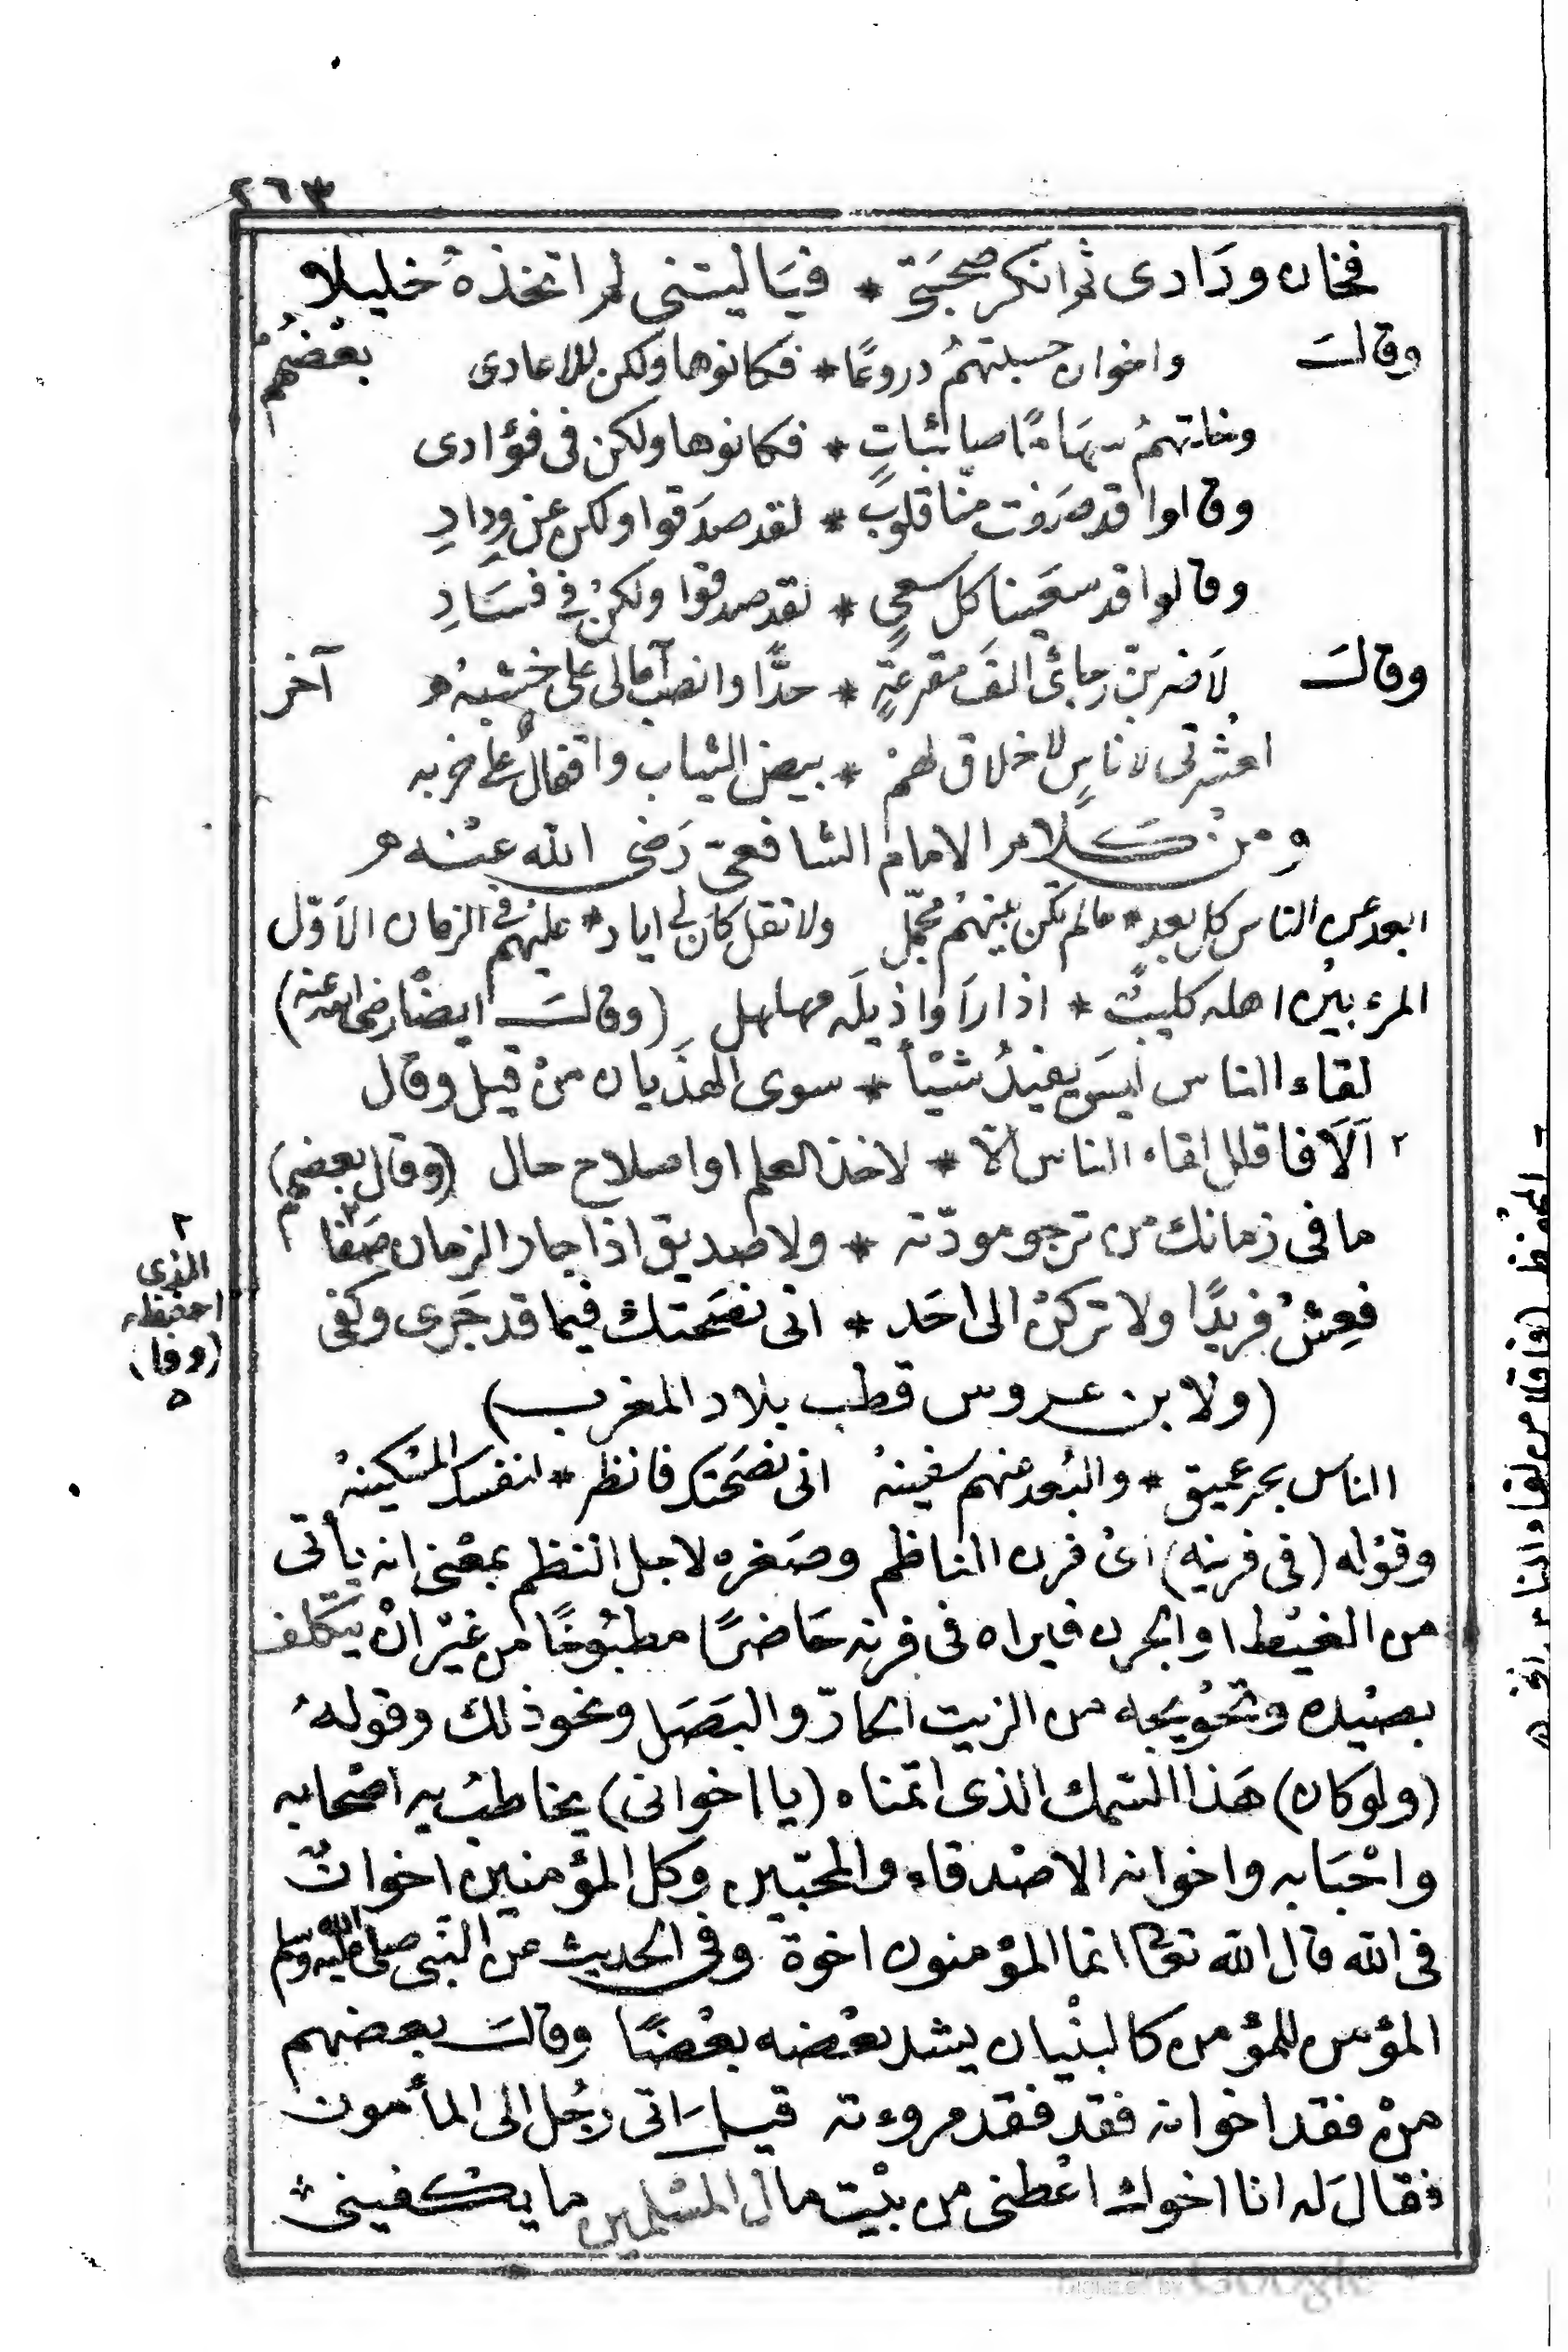 ٢٦٣
فخان ودَادى ثم انكر صحبَتى * فيَا ليتنى لم اتخذهُ خليلا
وقالَ واخوان حسبتهمُ دروعًا * فكانوها ولكن للاعادى بعْضهُمْ
وخلتهمُ سهَامًا صائباتٍ * فكانوها ولكن فى فؤادى
وقالوا قد صَفت منّا قلوبٌ * لقد صدَقوا ولكن عن وِدادِ
وقالوا قد سعَينا كل سعىٍ * لقد صدقوا ولكنْ فى فسَادِ
وقالَ لَاضربنّ رجائى الفَ مقرعَةٍ * حدًّا وانصبُ آمالى على خشبهْ آخر
اعثرتى لاناسٍ لا خلاق لهمْ * بيض الثياب واقفالٌ على خربه
ومنْ كَلَام الامام الشافعىّ رَضى الله عنْه
ابعد عن الناس كل بعدٍ * ما لم تكن بينهُمْ مجمّل ولا تقل كان لى اياد * عليْهم فى الزمان الاَوّل
المرء بيْن اهله كليبٌ * اذا راَوا ذيلَه مهلهل (وقالَ ايضًا رضى الله عنه)
لقاء الناس ليسَ يفيدُ شيْأ * سوى الهذَيان منْ قيل وقال
٢ اَلَا فاقلل لقاء الناس الّا * لاخذ العلم او اصلاح حال (وقال بعضهم)
ما فى زمانك من ترجو مودّته * ولا صديق اذا جار الزمان صَفا ٢
فعِشْ فريدًا ولا تركنْ الى احَد * انى نصَحتك فيما قد جَرى وكفى
(ولابن عروس قطب بلاد المغرب)
الناس بحر عميق * والبُعد منهم سفينهْ انى نصَحتك فانظر * لنفسك المسْكينهْ
وقوْله (فى فرينه) اىْ فرن الناظم وصَغره لاجل النظم بمعْنى انه يأتى
من الغيْط او الجرن فيراه فى فرنه حَاضرًا مطبُوخًا من غيْر انْ يتكلف
بصيْده وتحْويجه من الزيت الحارّ والبَصَل ونحو ذلك وقولهُ
(ولو كان) هَذا السّمك الذى اتمناه (يا اخوانى) يخاطبُ به اصْحابه
واحْبَابه واخوانه الاصْدقاء والمحبّين وكل المؤمنين اخوانٌ
فى الله قال الله تعَالى انما المؤمنون اخوة وفى الحديث عن النبى صلى الله عليه وسلم
المؤمن للمؤمن كالبنْيان يشد بعْضه بعْضًا وقالَ بعضهم
منْ فقد اخوانه فقد فقد مروءته قيلَ اتى رجُل الى المأمون
فقالَ له انا اخوك اعْطنى من بيْت مال المسْلمين ما يكْفينى
٢
الذى
احفظه
(وفا)
ه
٢ المحفوظ (فاقلل من لقاء الناس الخ ه